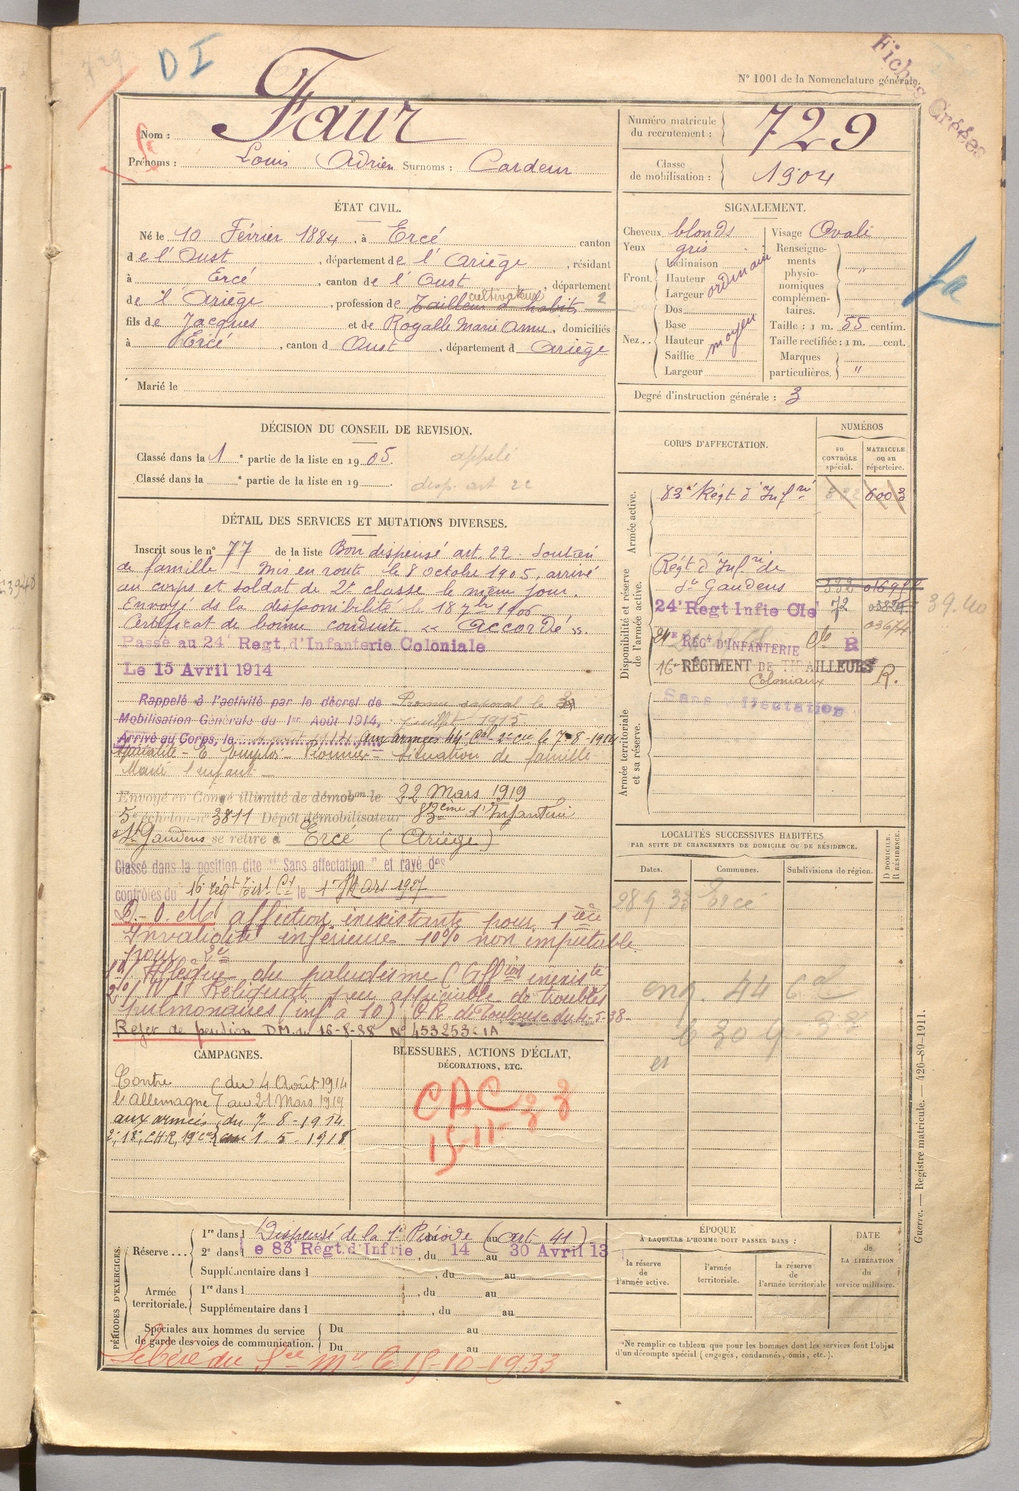 729
D I
N° 1001 de la Nomenclature générale.
Fiches Créées
Nom : Faur
Prénoms : Louis Adrien Surnoms : Cardeur
Numéro matricule du recrutement : 729
Classe de mobilisation : 1904
ÉTAT CIVIL.
Né le 10 Février 1884, à Ercé canton
de l'Oust, département de l'Ariège, résidant
à Ercé, canton de l'Oust, département
de l'Ariège, profession de Tailleur d'habits cultivateur 2
fils de Jacques et de Rogalle Marie Anne, domiciliés
à Ercé, canton d Oust, département d Ariège
Marié le
SIGNALEMENT.
Cheveux blonds
Yeux gris
Front. Inclinaison Hauteur Largeur ordinaire
Nez. Dos Base Hauteur Saillie Largeur moyen
Visage Ovale
Renseignements physionomiques complémentaires. "
Taille : 1 m. 55 centim.
Taille rectifiée : 1 m. cent.
Marques particulières. "
Degré d'instruction générale : 3
DÉCISION DU CONSEIL DE REVISION.
Classé dans la 1e partie de la liste en 1905. appelé
Classé dans la e partie de la liste en 19 disp. art 22
DÉTAIL DES SERVICES ET MUTATIONS DIVERSES.
Inscrit sous le n° 77 de la liste Bon dispensé art. 22. Soutien
de famille Mis en route le 8 octobre 1905, arrivé
au corps et soldat de 2e classe le même jour.
Envoyé ds la disponibilité le 18 7bre 1906
Certificat de bonne conduite "Accordé".
Passé au 24e Regt d'Infanterie Coloniale
Le 15 Avril 1914
Rappelé à l'activité par le décret de
Mobilisation Générale du 1er Août 1914,
Arrivé au Corps, le
juillet 1915
le 7-8-1914
situation de famille
Marié 1 enfant
Envoyé en Congé illimité de démobon le 22 Mars 1919
5e échelon n° 3811 Dépôt démobilisateur 83eme d'Infanterie
St Gaudens se retire à Ercé (Ariège)
Classé dans la position dite "Sans affectation" et rayé des
contrôles du 16 regt
affection inexistante pour 1ère
Invalidité inférieure 10% non imputable
pour 2e
1°/ Allègue du paludisme
2°/ Reliquat peu appréciable de troubles
pulmonaires (inf à 10) C.R. de Toulouse du 4-5-38-
Rejet de pension D.M. 16-8-38 N° 453253-IA
CORPS D'AFFECTATION.
NUMÉROS
au CONTRÔLE spécial.
MATRICULE ou au répertoire.
Armée active.
83e Régt d'Infrie 6003
Disponibilité et réserve de l'armée active.
Régt d'Infrie de
St Gaudens
24e Regt Infie Cle 72
39.40
24e REGt D'INFANTERIE Cle R
16e RÉGIMENT DE TIRAILLEURS
Coloniaux R.
Armée territoriale et sa réserve.
Sans affectation
LOCALITÉS SUCCESSIVES HABITÉES
PAR SUITE DE CHANGEMENTS DE DOMICILE OU DE RÉSIDENCE.
Dates. Communes. Subdivisions de région. D. DOMICILE. R. RÉSIDENCE.
28 9 33 Ercé
CAMPAGNES.
Contre (du 4 Août 1914
l'Allemagne (au 21 Mars 1919
aux armées du 7-8-1914
1-5-1918
BLESSURES, ACTIONS D'ÉCLAT,
DÉCORATIONS, ETC.
CAC 33
15-11-
PÉRIODES D'EXERCICES.
Réserve... 1re dans l Dispensé de la 1e Période (art 41)
2e dans le 83e Régt d'Infrie, du 14 au 30 Avril 13
Supplémentaire dans l , du au
Armée territoriale. 1re dans l , du au
Supplémentaire dans l , du au
Spéciales aux hommes du service de garde des voies de communication. Du au
Du au
Libéré du Sce Mre le 15-10-1933
ÉPOQUE
À LAQUELLE L'HOMME DOIT PASSER DANS :
la réserve de l'armée active. l'armée territoriale. la réserve de l'armée territoriale
DATE de LA LIBÉRATION du service militaire.
*Ne remplir ce tableau que pour les hommes dont les services font l'objet
d'un décompte spécial (engagés, condamnés, omis, etc.).
Guerre. — Registre matricule. — 426-89-1911.